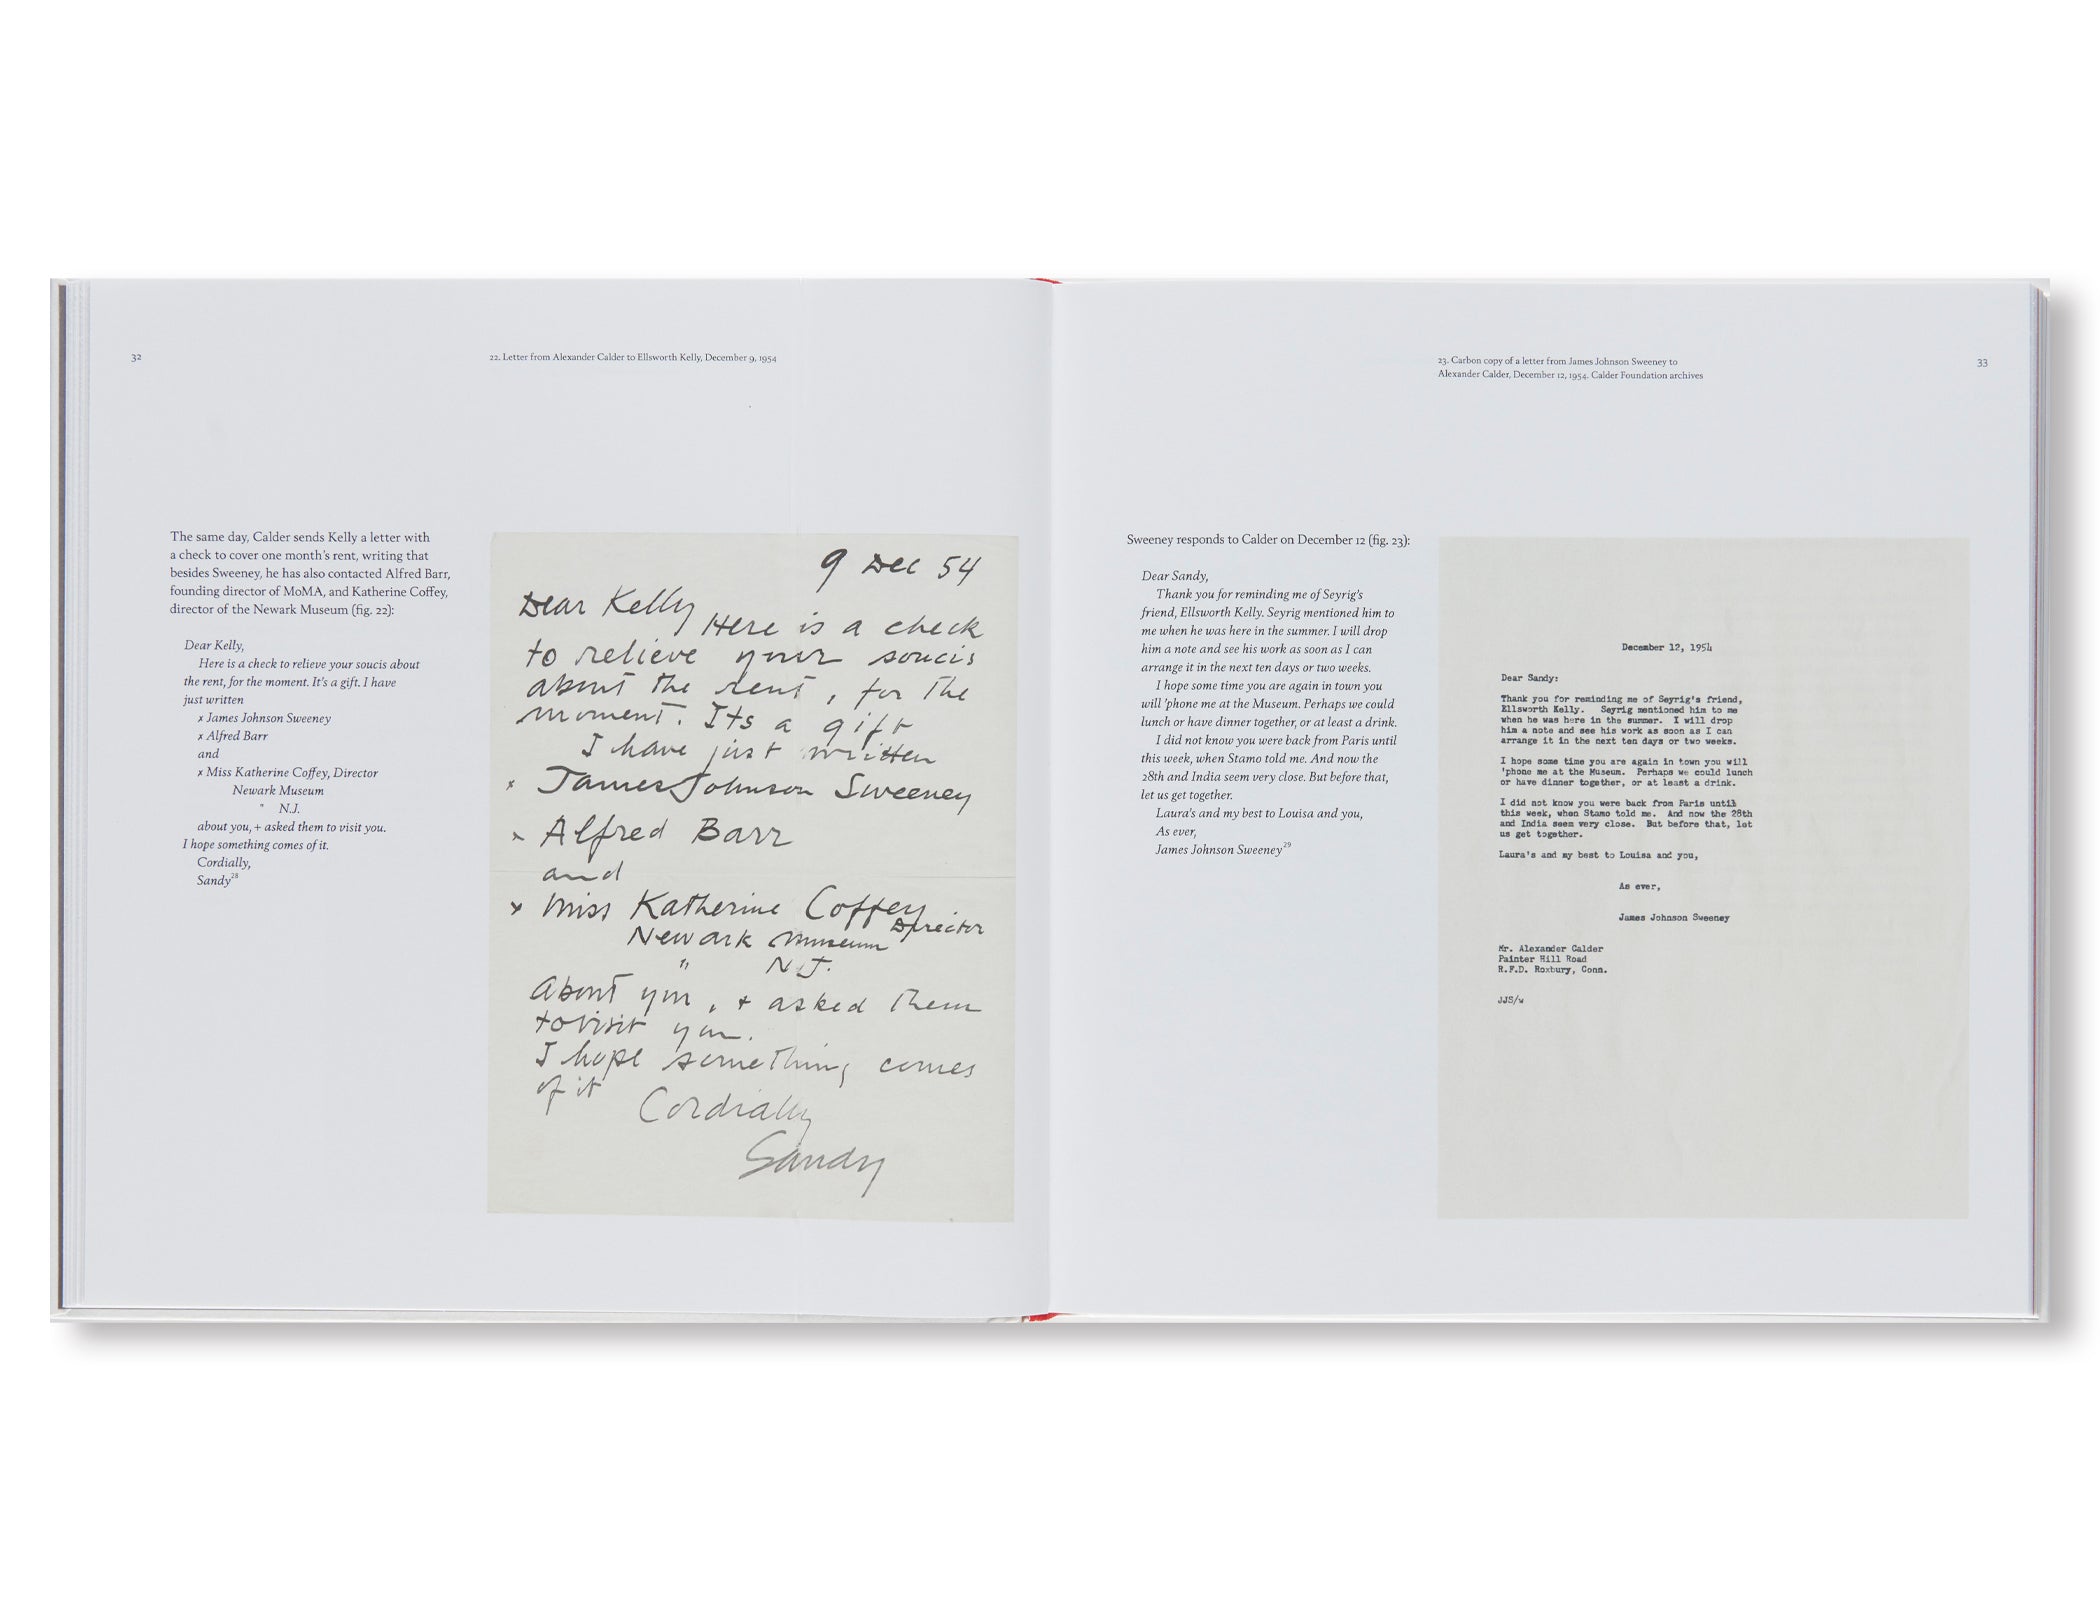 32
22. Letter from Alexander Calder to Ellsworth Kelly, December 9, 1954
The same day, Calder sends Kelly a letter with
a check to cover one month's rent, writing that
besides Sweeney, he has also contacted Alfred Barr,
founding director of MoMA, and Katherine Coffey,
director of the Newark Museum (fig. 22):
Dear Kelly,
Here is a check to relieve your soucis about
the rent, for the moment. It's a gift. I have
just written
x James Johnson Sweeney
x Alfred Barr
and
x Miss Katherine Coffey, Director
Newark Museum
" N.J.
about you, + asked them to visit you.
I hope something comes of it.
Cordially,
Sandy28
9 Dec 54
Dear Kelly
Here is a check
to relieve your soucis
about the rent, for the
moment. Its a gift
I have just written
x James Johnson Sweeney
x Alfred Barr
and
x Miss Katherine Coffey
Director
Newark Museum
" N.J.
about you, + asked them
to visit you.
I hope something comes
of it
Cordially
Sandy
23. Carbon copy of a letter from James Johnson Sweeney to
Alexander Calder, December 12, 1954. Calder Foundation archives
33
Sweeney responds to Calder on December 12 (fig. 23):
Dear Sandy,
Thank you for reminding me of Seyrig's
friend, Ellsworth Kelly. Seyrig mentioned him to
me when he was here in the summer. I will drop
him a note and see his work as soon as I can
arrange it in the next ten days or two weeks.
I hope some time you are again in town you
will 'phone me at the Museum. Perhaps we could
lunch or have dinner together, or at least a drink.
I did not know you were back from Paris until
this week, when Stamo told me. And now the
28th and India seem very close. But before that,
let us get together.
Laura's and my best to Louisa and you,
As ever,
James Johnson Sweeney29
December 12, 1954
Dear Sandy:
Thank you for reminding me of Seyrig's friend,
Ellsworth Kelly. Seyrig mentioned him to me
when he was here in the summer. I will drop
him a note and see his work as soon as I can
arrange it in the next ten days or two weeks.
I hope some time you are again in town you will
'phone me at the Museum. Perhaps we could lunch
or have dinner together, or at least a drink.
I did not know you were back from Paris until
this week, when Stamo told me. And now the 28th
and India seem very close. But before that, let
us get together.
Laura's and my best to Louisa and you,
As ever,
James Johnson Sweeney
Mr. Alexander Calder
Painter Hill Road
R.F.D. Roxbury, Conn.
JJS/w